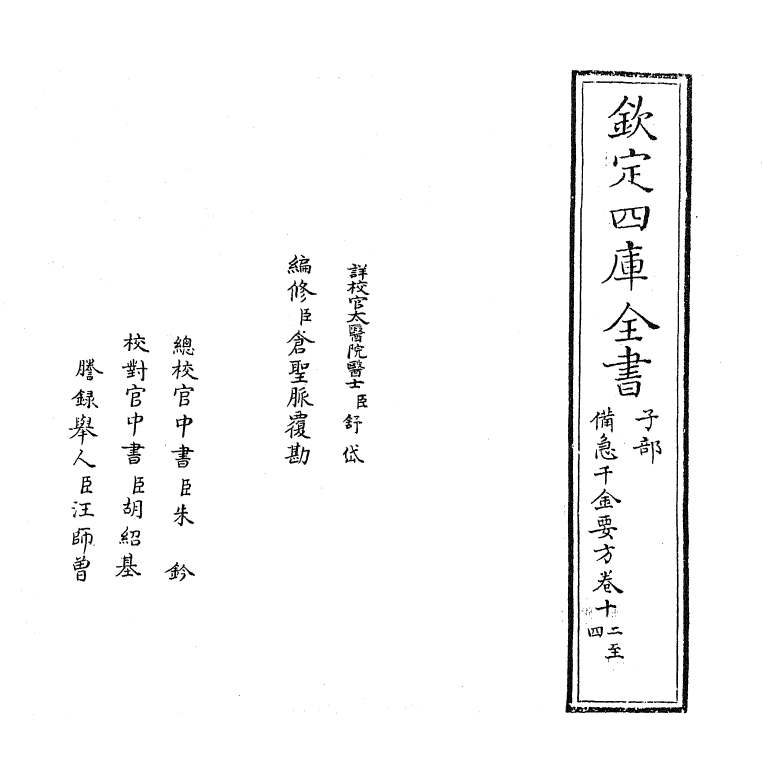 欽定四庫全書
子部
備急千金要方卷十二至四
詳校官太醫院醫士臣舒岱
編修臣倉聖脈覆勘
總校官中書臣朱鈐
校對官中書臣胡紹基
謄録舉人臣汪師曾